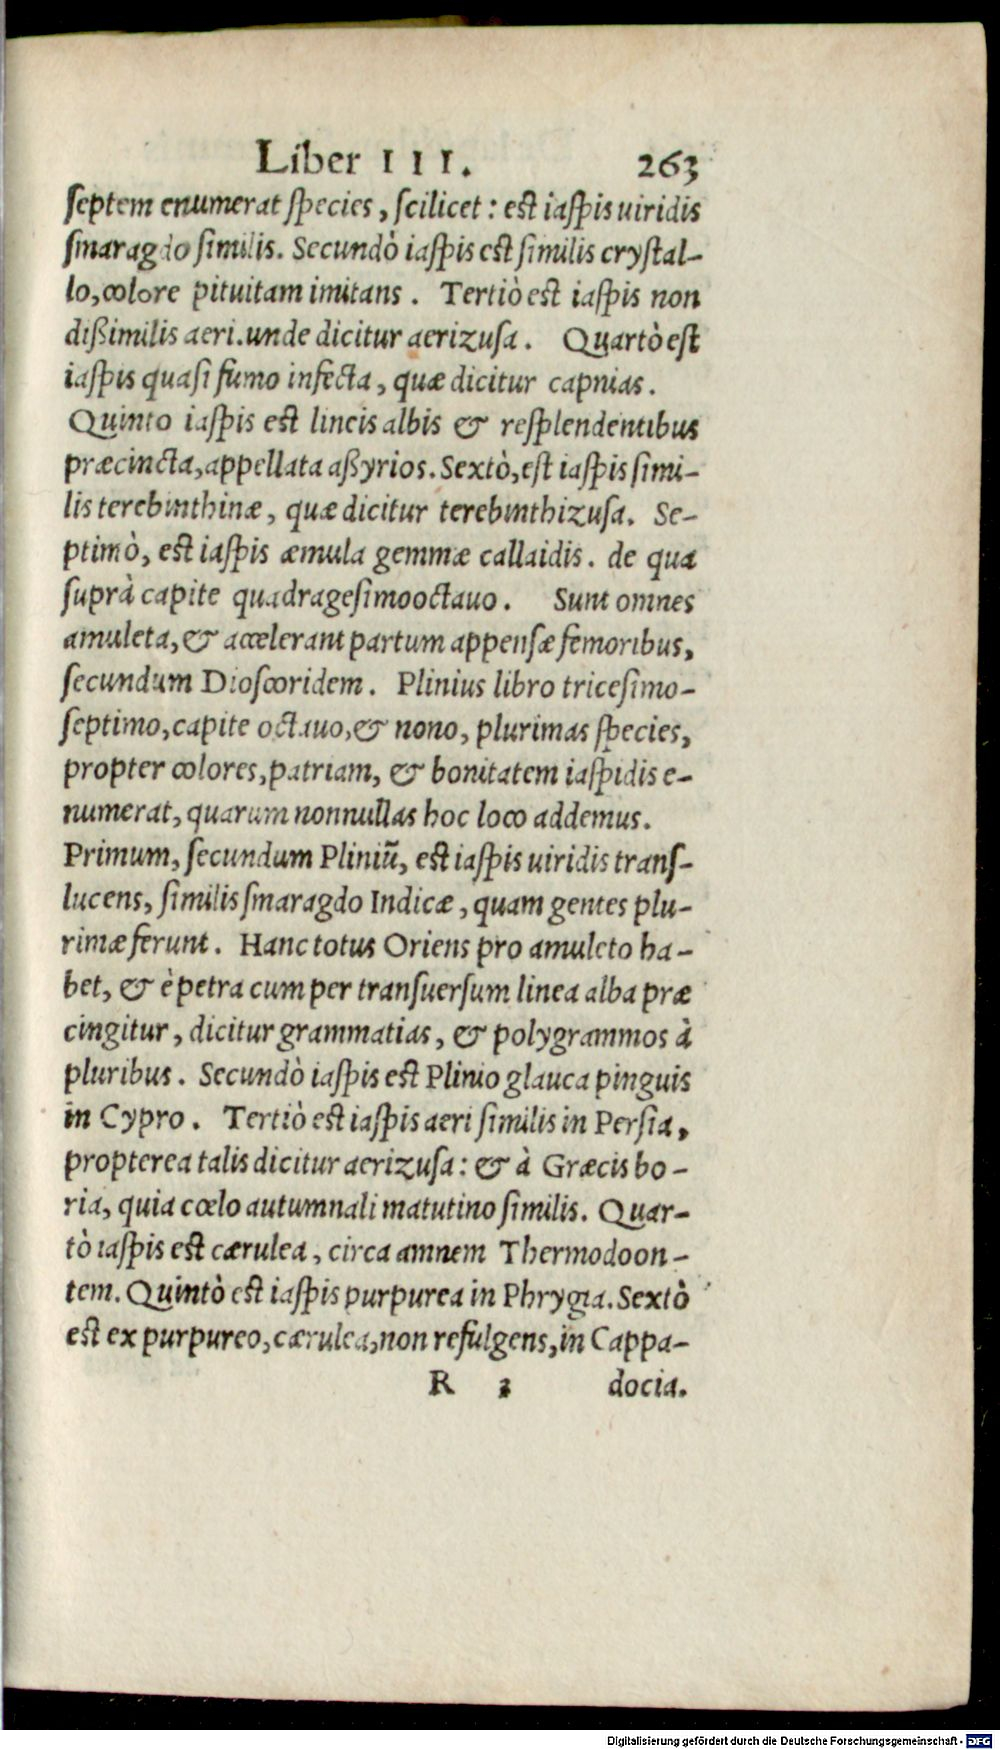 Liber III. 263
ſeptem enumerat ſpecies, ſcilicet: eſt iaſpis uiridis
ſmaragdo ſimilis. Secundò iaſpis eſt ſimilis cryſtal-
lo, colore pituitam imitans. Tertiò eſt iaſpis non
dißimilis aeri. unde dicitur aerizuſa. Quartò eſt
iaſpis quaſi fumo infecta, quæ dicitur capnias.
Quinto iaſpis est lineis albis & reſplendentibus
præcincta, appellata aßyrios. Sextò, eſt iaſpis ſimi-
lis terebinthinæ, quæ dicitur terebinthizuſa. Se-
ptimò, eſt iaſpis æmula gemmæ callaidis. de qua
ſuprà capite quadrageſimooctauo. Sunt omnes
amuleta, & accelerant partum appenſæ femoribus,
ſecundum Dioſcoridem. Plinius libro triceſimo-
ſeptimo, capite octauo, & nono, plurimas ſpecies,
propter colores, patriam, & bonitatem iaſpidis e-
numerat, quarum nonnullas hoc loco addemus.
Primum, ſecundum Pliniū, eſt iaſpis uiridis tranſ-
lucens, ſimilis ſmaragdo Indicæ, quam gentes plu-
rimæ ferunt. Hanc totus Oriens pro amuleto ha-
bet, & è petra cum per tranſuerſum linea alba præ
cingitur, dicitur grammatias, & polygrammos à
pluribus. Secundò iaſpis eſt Plinio glauca pinguis
in Cypro. Tertiò eſt iaſpis aeri ſimilis in Perſia,
propterea talis dicitur aerizuſa: & à Græcis bo-
ria, quia cœlo autumnali matutino ſimilis. Quar-
tò iaſpis eſt cærulea, circa amnem Thermodoon-
tem. Quintò eſt iaſpis purpurea in Phrygia. Sextò
eſt ex purpureo, cærulea, non refulgens, in Cappa-
R 3 docia.
Digitalisierung gefördert durch die Deutsche Forschungsgemeinschaft - DFG